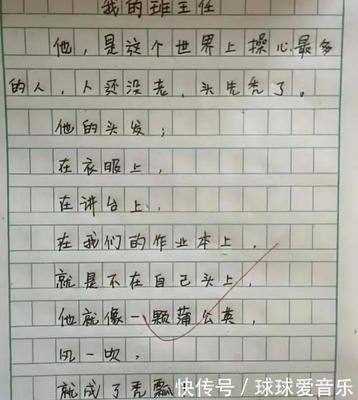 我的班主任
他，是这个世界上操心最多
的人，人还没老，头先秃了。
他的头发；
在衣服上，
在讲台上，
在我们的作业本上，
就是不在自己头上，
他就像一颗蒲公英，
风一吹，
就成了秃瓢
快传号／球球爱音乐